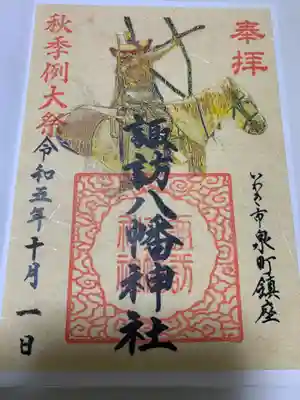 奉拝
いわき市泉町鎮座
諏訪八幡神社
秋季例大祭
令和五年十月一日